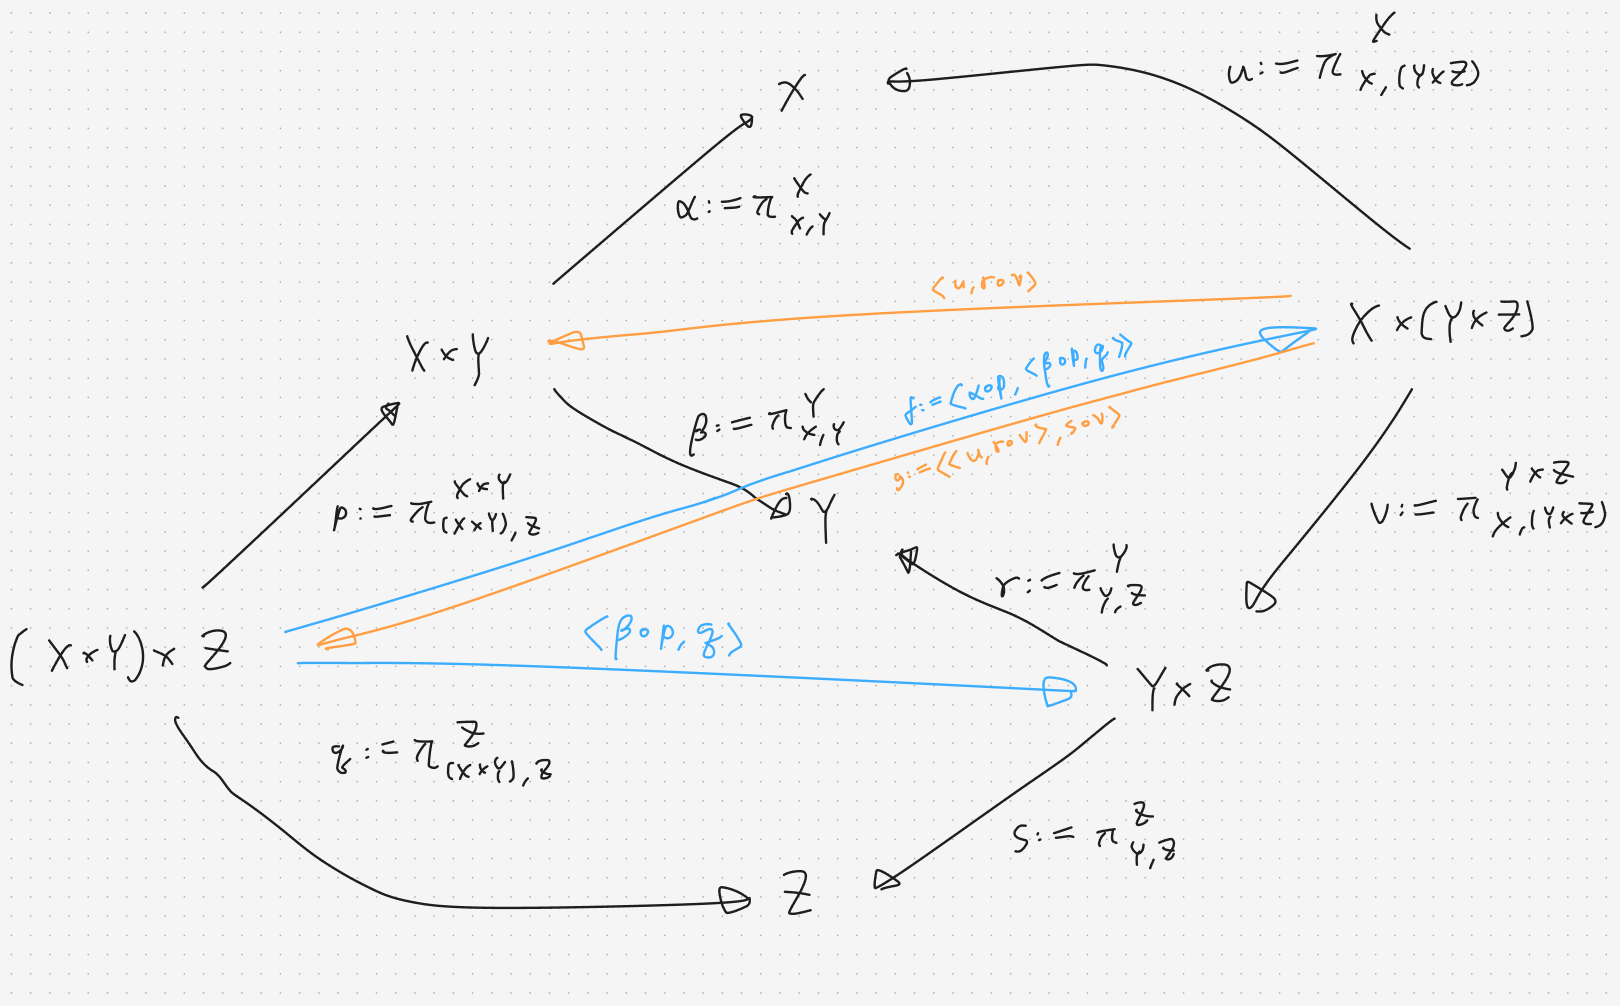 X
u := π^X_{X,(Y×Z)}
α := π^X_{X,Y}
⟨u, r∘v⟩
X×(Y×Z)
X×Y
f := ⟨α∘p, ⟨β∘p, q⟩⟩
β := π^Y_{X,Y}
g := ⟨⟨u, r∘v⟩, s∘v⟩
p := π^{X×Y}_{(X×Y),Z}
Y
v := π^{Y×Z}_{X,(Y×Z)}
r := π^Y_{Y,Z}
(X×Y)×Z
⟨β∘p, q⟩
Y×Z
q := π^Z_{(X×Y),Z}
s := π^Z_{Y,Z}
Z